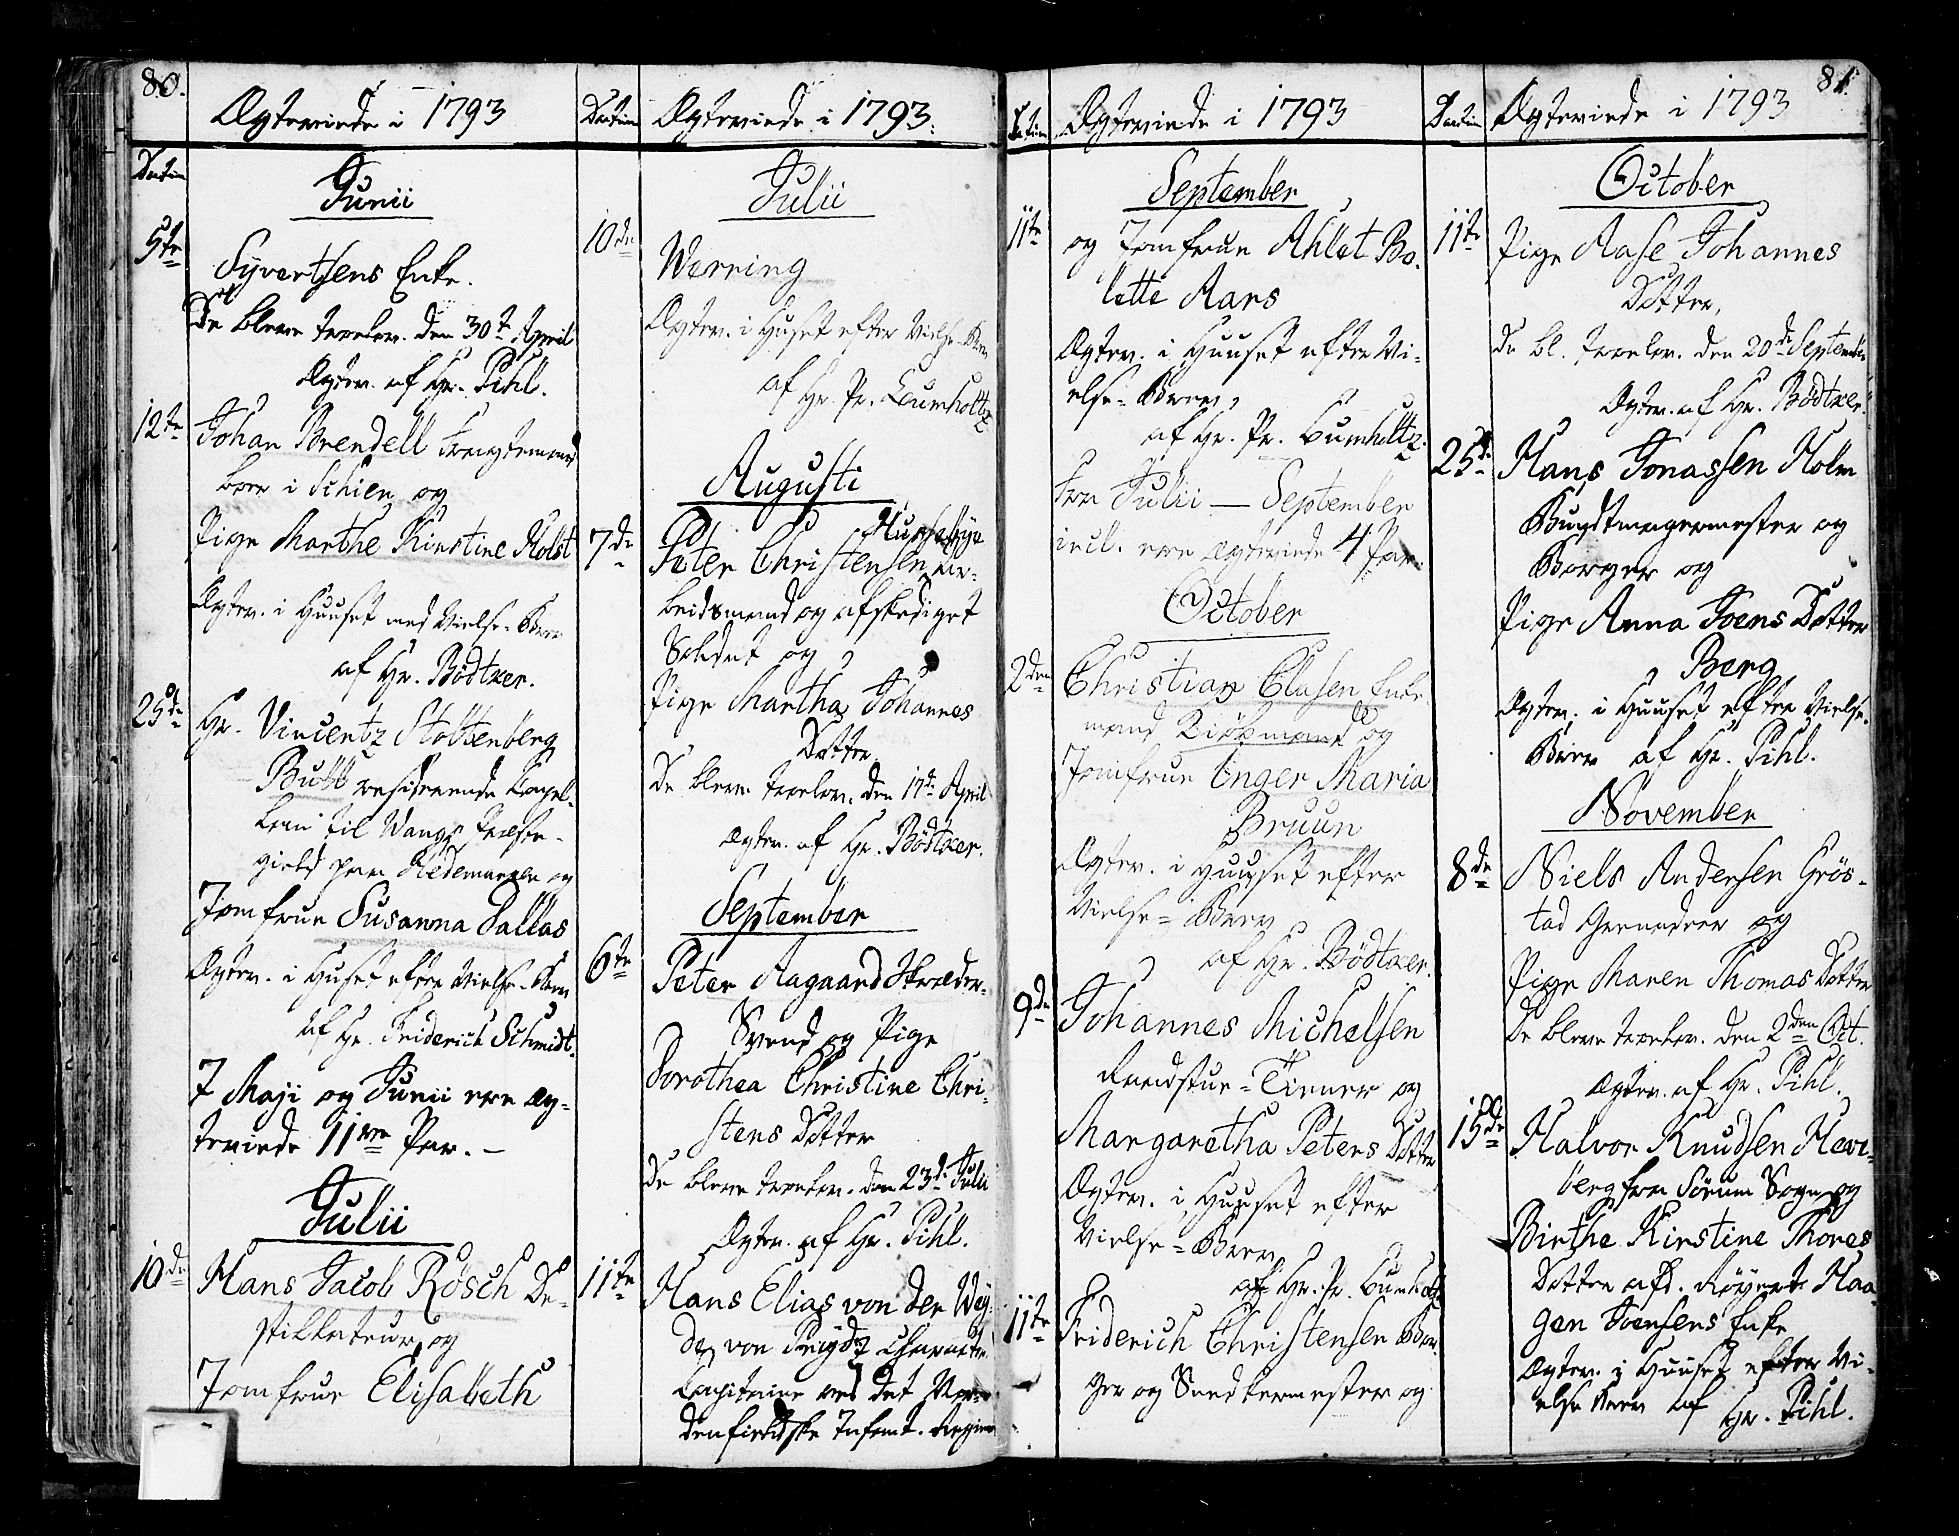 80.
Ægteviede i 1793
Datum
Junii
5te
Syvertsens Enke.
De bleve trolov. den 30te April
Ægtev. af Hr. Pihl.
12te
Johan Brendell
boe i Schien og
Pige Marthe Kirstine Holst
Ægtev. i Huuset med Vielse-Brev
af Hr. Bödtker.
25de
Hr. Vincentz Stoltenberg
Bull residerende Capel-
lan til Wangs Præste-
gield paa Hedemarken og
Jomfrue Susanna Dallas
Ægtev. i Huset efter Vielse-Brev
af Hr. Friderich Schmidt.
I Maji og Junii ere Æg-
teviede 11ve Par. –
Julii
10de
Hans Jacob Rösch De-
stillateur og
Jomfrue Elisabeth
Datum
Ægteviede i 1793.
Julii
10de
Werring
Ægtev. i Huset efter Vielse-Brev
af Hr. Pr. Lumholtz
Augusti
7de
Husebye
Peter Christensen Ar-
beidsmand og afskediget
Soldat og
Pige Martha Johannes
Datter
De bleve trolov. den 17de April
Ægtev. af Hr. Bödtker.
September
6te
Peter Aagaard Skrædder-
Svend og Pige
Dorothea Christine Chri-
stens Datter
De bleve trolov. den 23de Julii
Ægtev. af Hr. Pihl.
11te
Hans Elias von der Wey-
de von Character.
Capitaine ved det Nor-
denfieldske Infant. Regim.
Datum
Ægteviede i 1793
September
11te
og Jomfrue Ahlet Bo-
lette Aars
Ægtev. i Huuset efter Vi-
else-Brev,
af Hr. Pr. Lumholtz.
Fra Julii — September
incl. ere Ægteviede 4 Par.
October
2den
Christian Clasen Enke-
mand Kiöbmand og
Jomfrue Inger Maria
Bruun
Ægtev. i Huuset efter
Vielse-Brev
af Hr. Bödtker.
9de
Johannes Michelsen
Raadstue-Tiener og
Margaretha Peters Datter
Ægtev. i Huuset efter
Vielse-Brev
af Hr. Pr. Lumholtz
11te
Friderich Christensen Bor-
ger og Snedkermester og
81.
Datum
Ægteviede i 1793
October
11te
Pige Aase Johannes
Datter,
De bl. trolov. den 20de September
Ægtev. af Hr. Bödtker.
25de
Hans Jonassen Holm
Bundtmagermester og
Borger og
Pige Anna Joens Datter
Berg
Ægtev. i Huuset efter Vielse-
Brev af Hr. Pihl.
November
8de
Niels Andersen Grös-
tad Grenadeer og
Pige Maren Thomas Datter
De bleve trolov. den 2den Oct.
Ægtev. af Hr. Pihl.
15de
Halvor Knudsen Hevi-
berg fra Sörum Sogn og
Birthe Kirstine Thores
Datter afd. Haa-
gen Joensens Enke
Ægtev. i Huuset efter Vi-
else Brev af
Hr. Pihl.